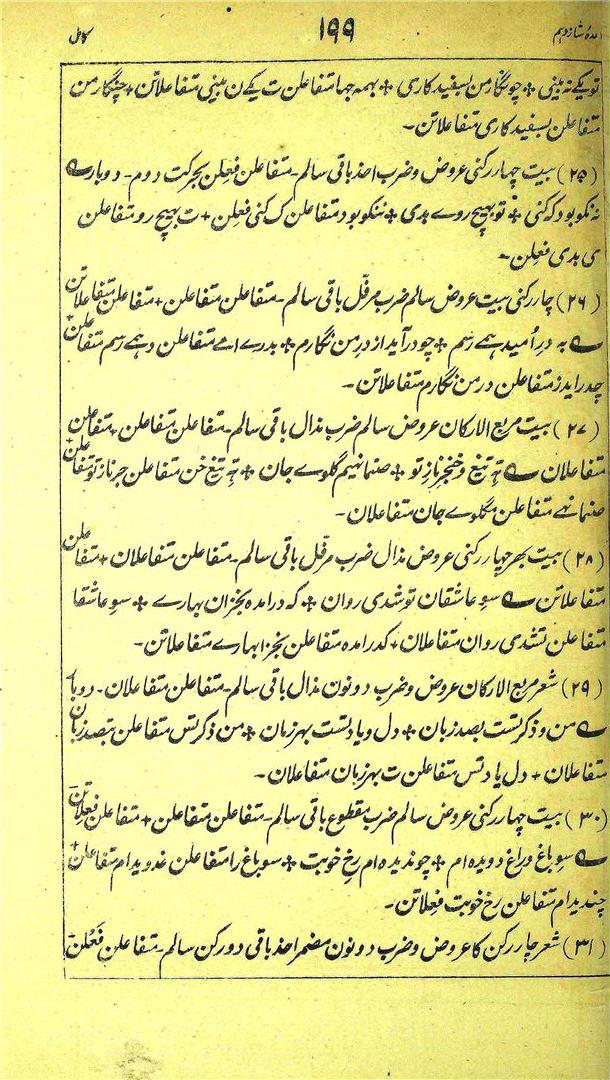 قاعدہ شانزدہم ۱۹۹ کامل
تو یکے نہ بینی ÷ چو نگار من بسفید کاری ÷ بہمہ جہا متفاعلن ت یکے ن بینی متفاعلاتن + چنگار من
متفاعلن بسفید کاری متفاعلاتن۔
(۲۵) بیت چہار رکنی عروض و ضرب احذ باقی سالم۔ متفاعلن فَعِلن بحرکت دوم۔ دوبار ے
نہ نکو بود کہ کنی ÷ تو بہیچ روے بدی ÷ ننکو بود متفاعلن ک کنی فعلن + ت بہیچ رو متفاعلن
ی بدی فعلن۔
(۲۶) چار رکنی بیت عروض سالم ضرب مرفّل باقی سالم۔ متفاعلن متفاعلن + متفاعلن متفاعلاتن
ے بہ درِ اُمید ہمے رسم ÷ چو درآید از درِ من نگارم ÷ بدرے امے متفاعلن دہمے رسم متفاعلن +
چدر ایدز متفاعلن در من نگارم متفاعلاتن۔
(۲۷) بیت مربع الارکان عروض سالم ضرب مذال باقی سالم۔ متفاعلن متفاعلن + متفاعلن
متفاعلان ے تہِ تیغ و خنجر نازِ تو ÷ صنما نہیم گلوے جان ÷ تہِ تیغ خن متفاعلن جر ناز تو متفاعلن +
صنما نہے متفاعلن مگلوے جان متفاعلان۔
(۲۸) بیت بھر چہار رکنی عروض مذال ضرب مرفّل باقی سالم۔ متفاعلن متفاعلان + متفاعلن
متفاعلاتن ے سوِ عاشقان تو شدی روان ÷ کہ درامدہ بخزان بہارے ÷ سو عاشقا
متفاعلن تشدی روان متفاعلان + کدرامدہ متفاعلن بخزا بہارے متفاعلاتن۔
(۲۹) شعر مربع الارکان عروض و ضرب دونون مذال باقی سالم۔ متفاعلن متفاعلان۔ دوبار
ے من و ذکرِ تست بصد زبان ÷ دل و یادِ تست بہر زبان ÷ من ذکر تس متفاعلن تبصد زبان
متفاعلان + دل یاد تس متفاعلن ت بہر زبان متفاعلان۔
(۳۰) بیت چہار رکنی عروض سالم ضرب مقطوع باقی سالم۔ متفاعلن متفاعلن + متفاعلن فعِلاتن
ے سوِ باغ و راغ دویدہ ام ÷ چو ندیدہ ام رخِ خوبت ÷ سو باغ را متفاعلن غدویدام متفاعلن +
چندیدام متفاعلن رخ خوبت فعلاتن۔
(۳۱) شعر چار رکن کا عروض و ضرب دونون مضمر احذ باقی دو رکن سالم۔ متفاعلن فَعْلن۔